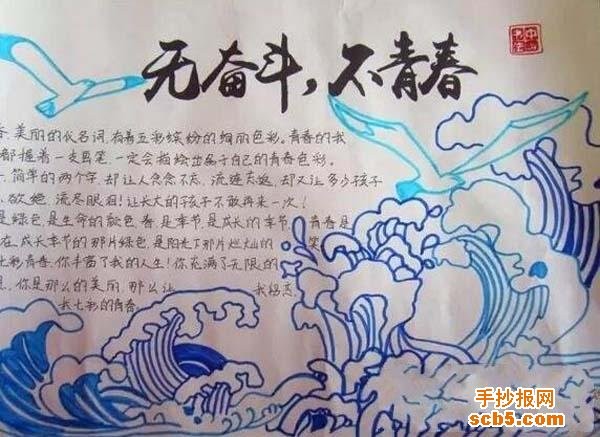 无奋斗，不青春
春，美丽的代名词，有着五彩缤纷的绚丽色彩。青春的我
都握着一支画笔，一定会描绘出属于自己的青春色彩。
简单的两个字，却让人念念不忘、流连忘返，却又让多少孩子
欲绝，流尽眼泪！让长大的孩子不敢再来一次！
是绿色，是生命的颜色，春，是季节，是成长的季节，青春是
在成长季节的那片绿色，是阳光下那片灿烂的笑
七彩青春，你丰富了我的人生！你充满了无限的
你是那么的美丽，那么让我留恋
我七彩的青春
手抄报网
scb5.com